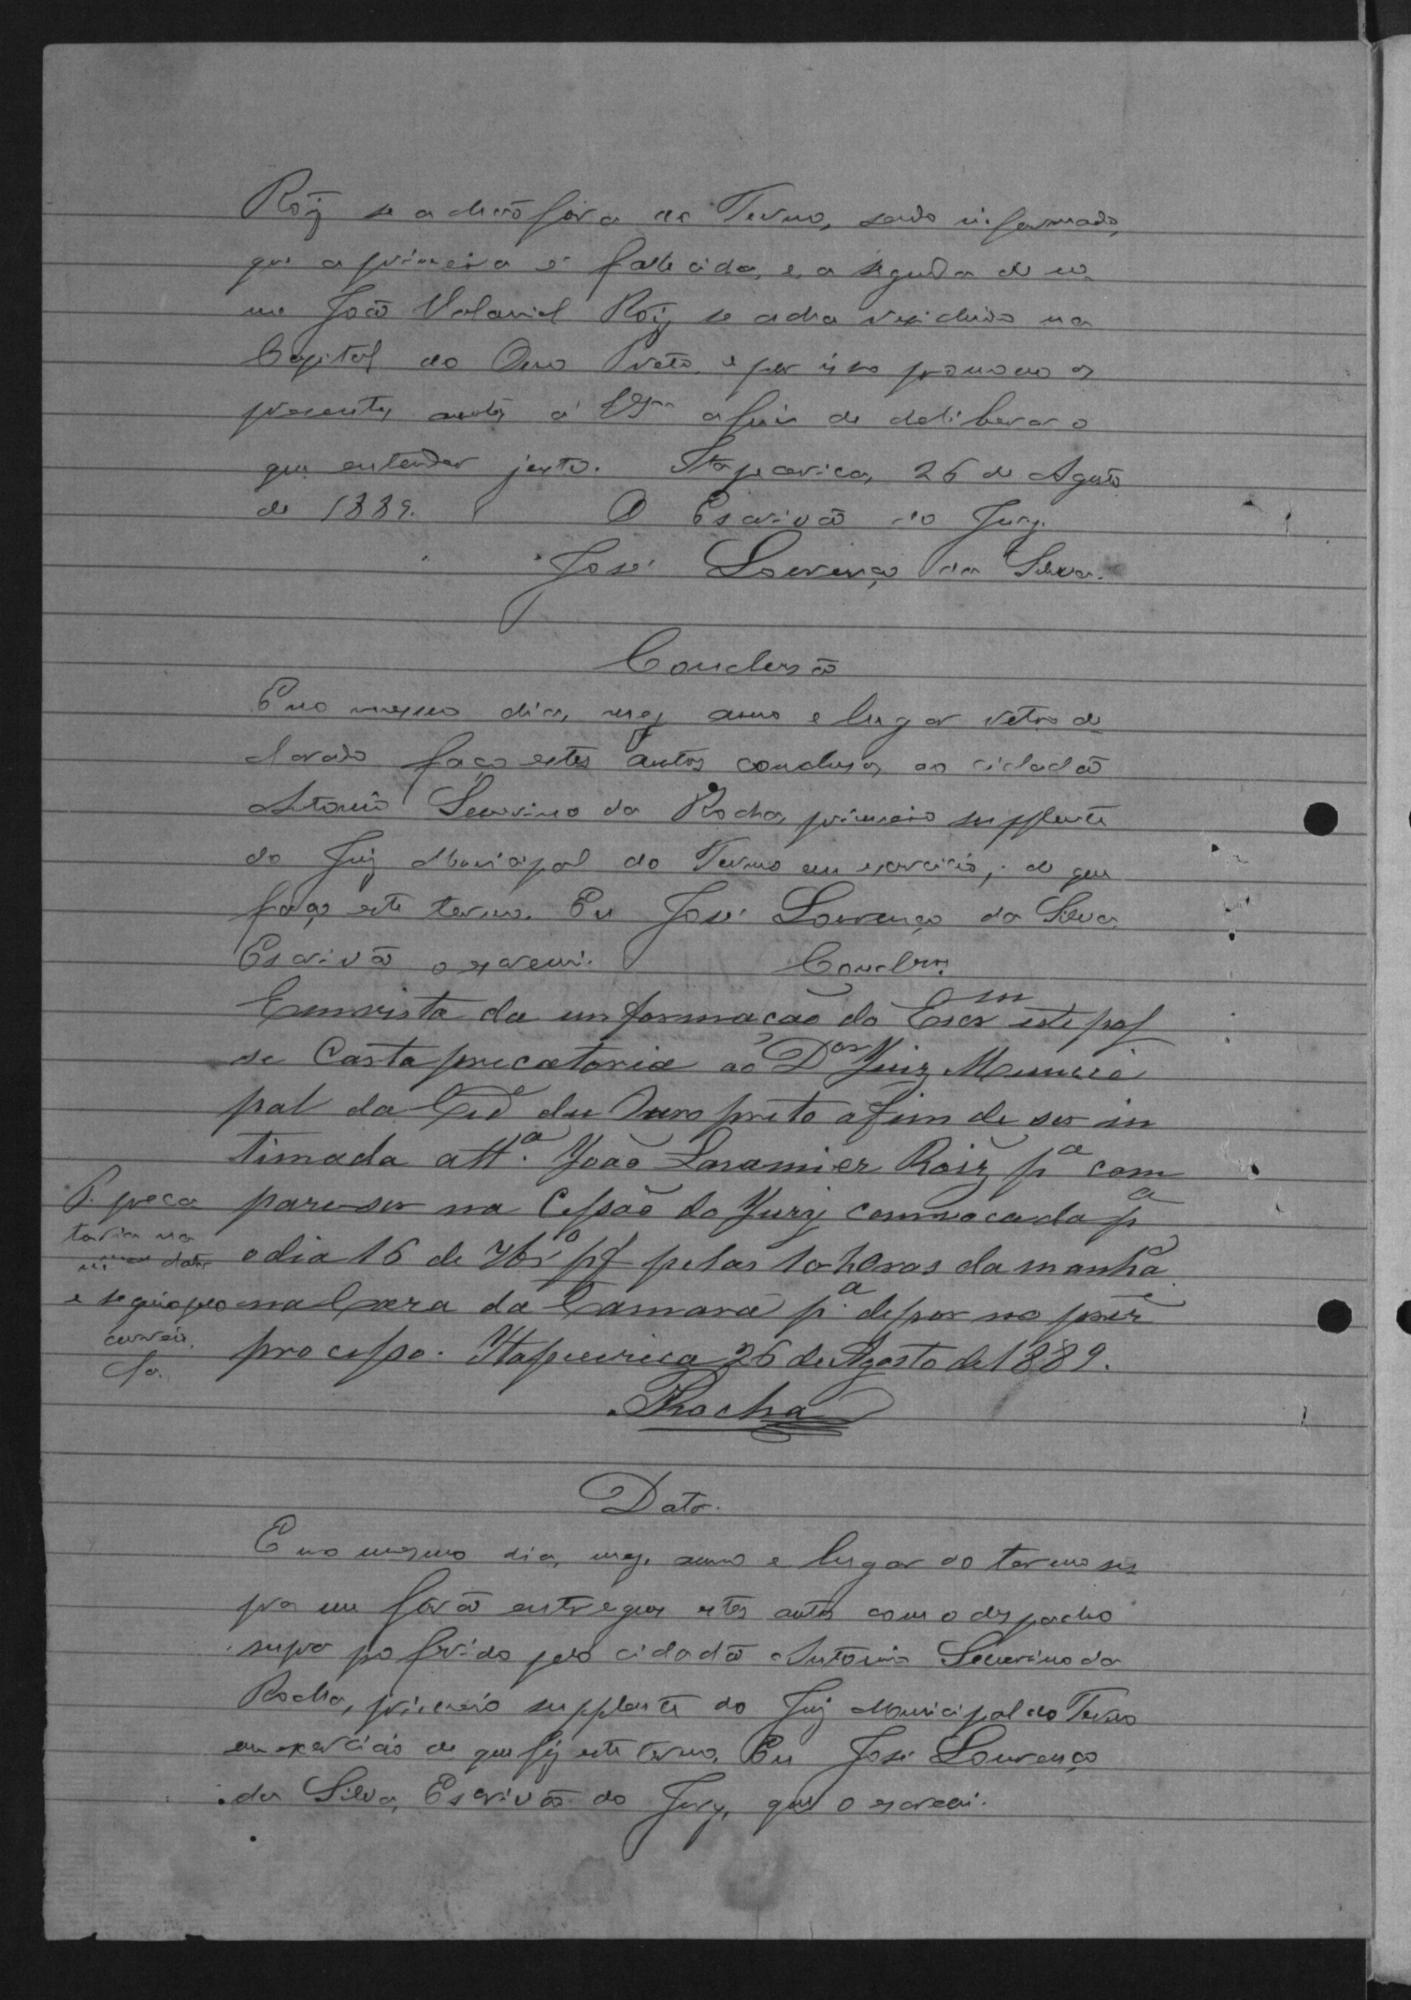 Roiz se achão fora do Termo, sendo informado,
que a primeira é fallecida, e a segunda de no
me João Roiz se acha residindo na
Capital do Ouro Preto, e por isso promovo os
presentes autos á VSª afim de deliberar o
que entender justo. Itapecerica, 26 de Agosto
de 1889. O Escrivão do Jury.
José Lourenço da Silva.
Conclusão
E no mesmo dia, mez anno e lugar retro de
clarado faço estes autos conclusos ao cidadão
Antonio Severino da Rocha, primeiro supplente
do Juiz Municipal do Termo em exercicio, do que
faço este termo. Eu José Lourenço da Silva
Escrivão o escrevi. Conclsos.
Em vista da informação do Escrm
se Carta precatoria ao Dor Juiz Munici
pal da Cide du Ouro preto afim de ser in
timada a ttª João Roiz pª com
pareser na Cessão do Jury convocada pª
o dia 16 de 7brº pf pelas 10 horas da manhã
na Caza da Camara pª depor no prez
processo. Itapecirica 26 de Agosto de 1889.
Rocha
P. preca
toria na
data
e seguio pelo
correio.
Data.
E no mesmo dia, mez, anno e lugar do termo su
pra me forão entregues estes autos com o despacho
supra proferido pelo cidadão Antonio Severino da
Rocha, primeiro supplente do Juiz Municipal do Termo
em exercicio do que fiz este termo. Eu José Lourenço
da Silva, Escrivão do Jury, que o escrevi.